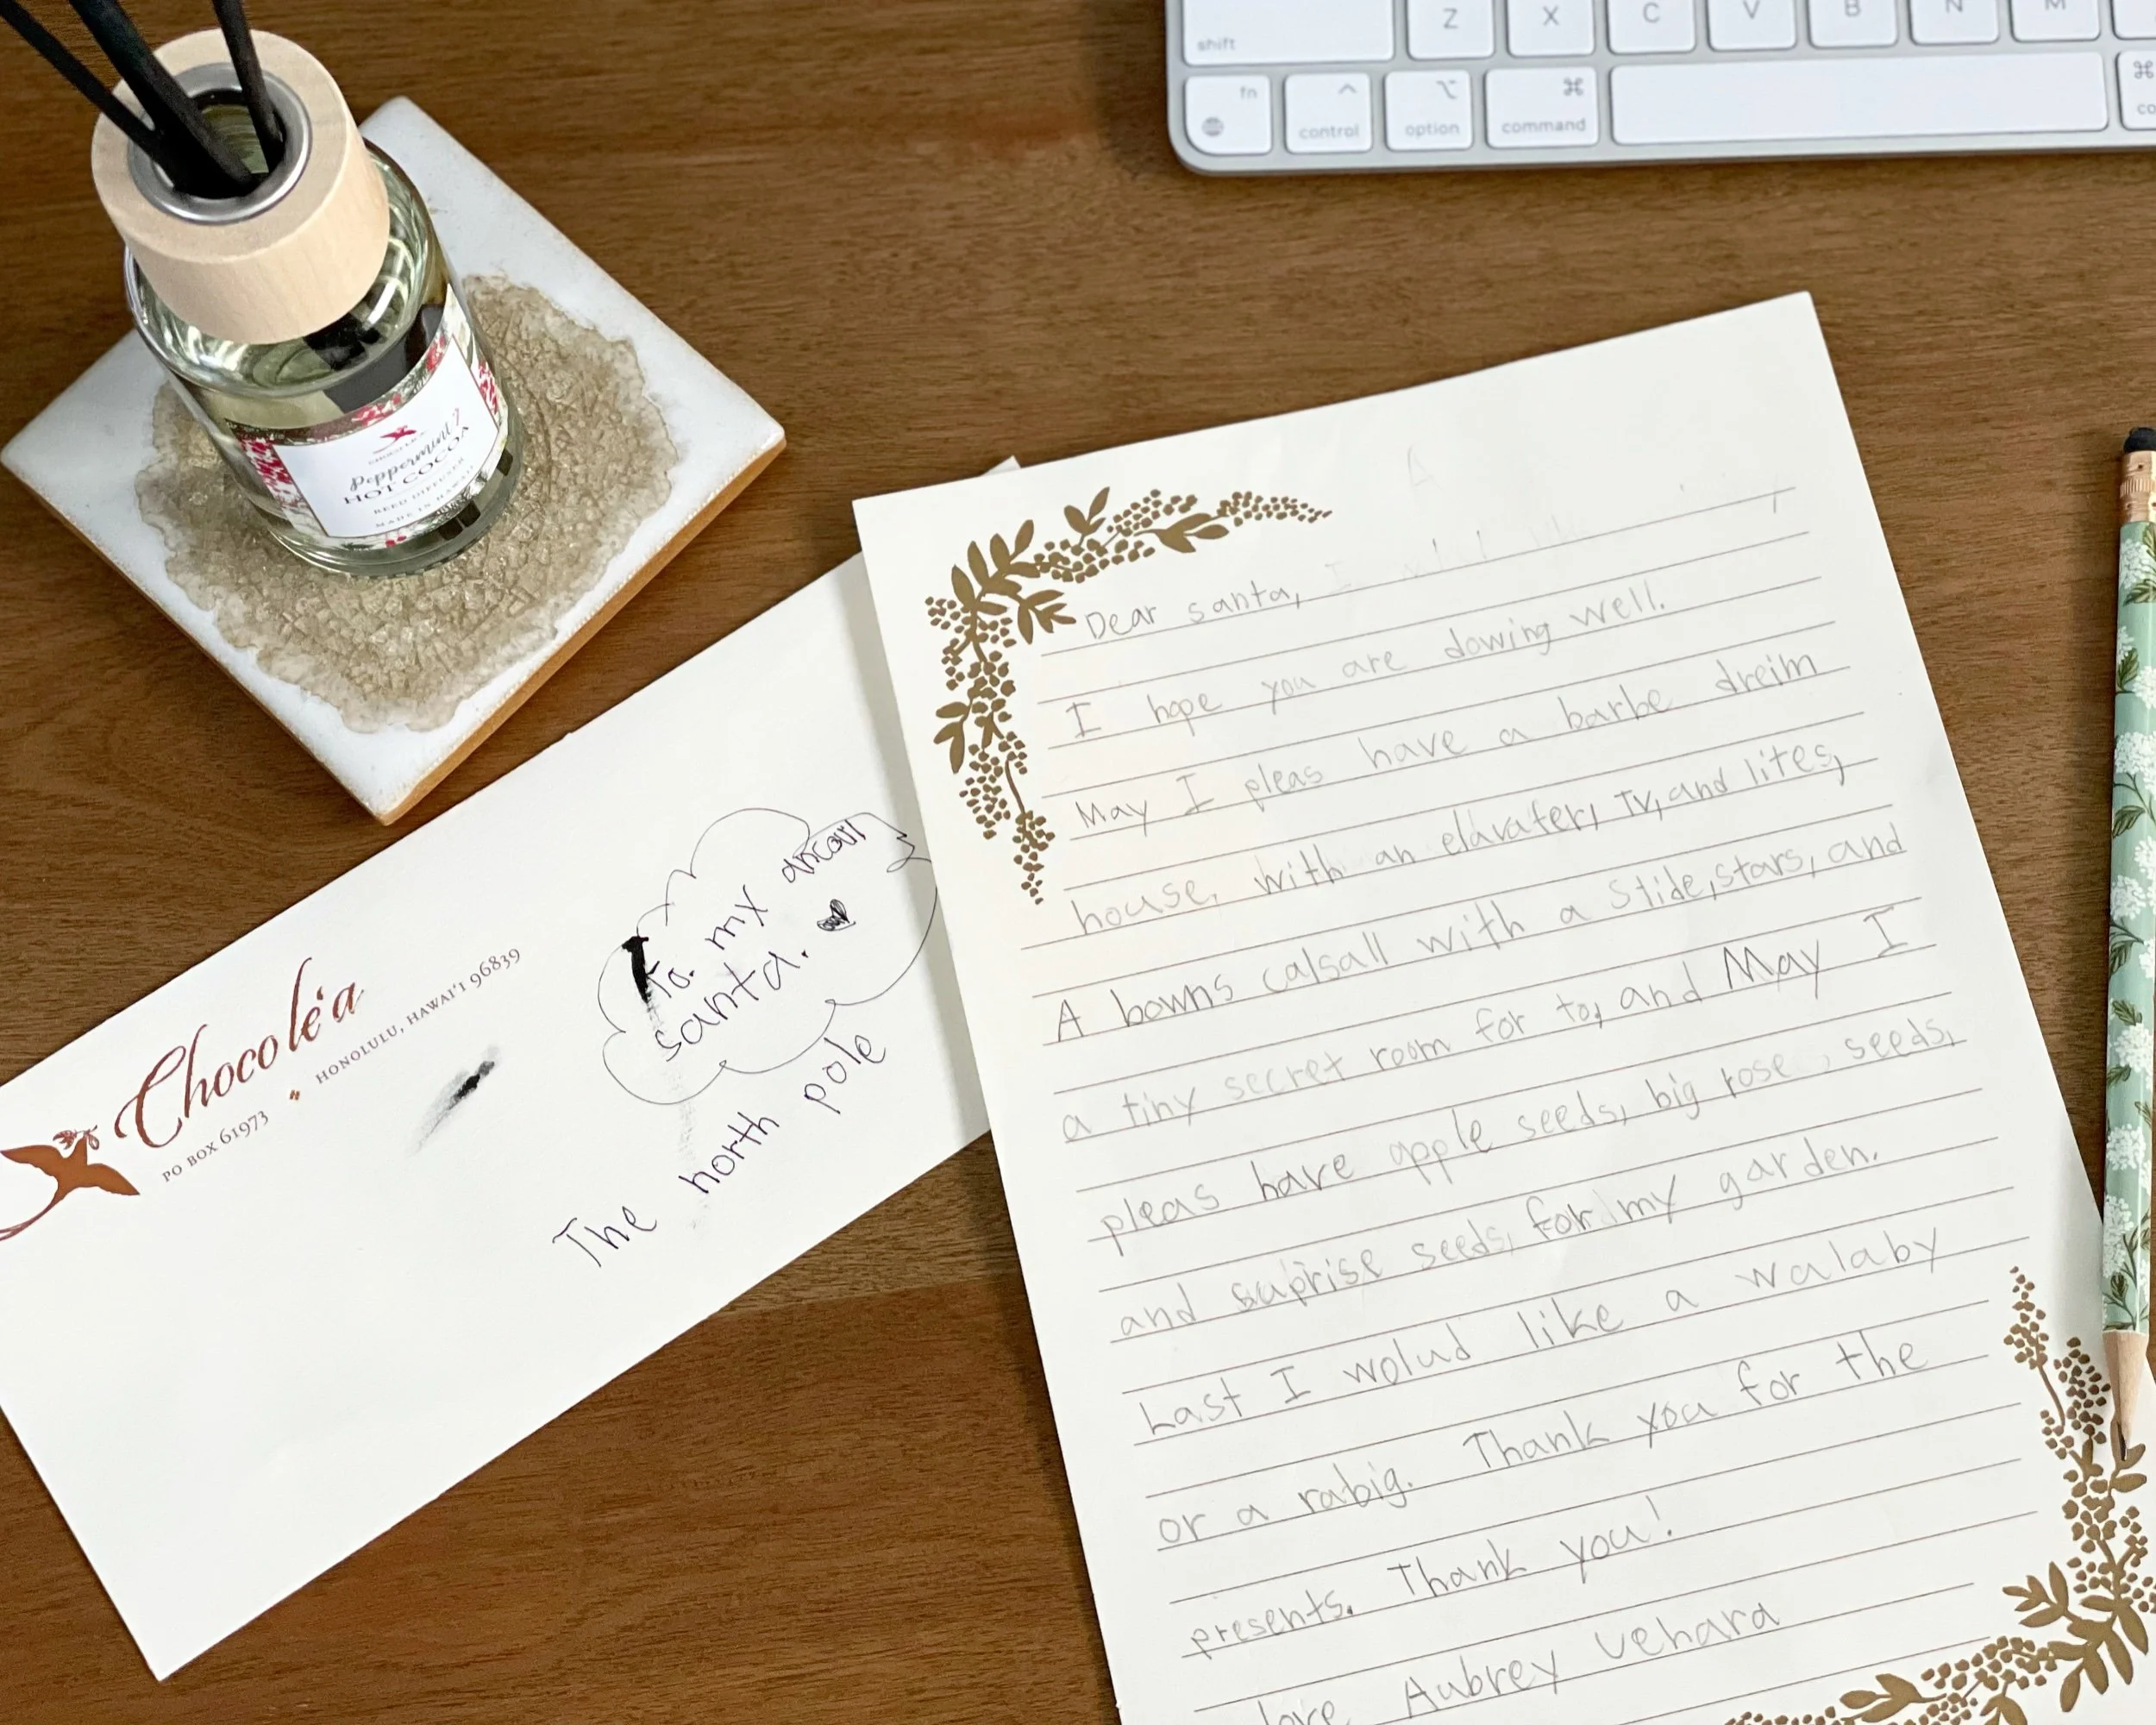 shift
Z
X
C
V
B
N
M
fn
control
option
command
Peppermint
HOT COCOA
REED DIFFUSER
MADE IN HAWAII
Chocolé'a
PO BOX 61973 HONOLULU, HAWAI'I 96839
To. my
santa.
The north pole
Dear santa,
I hope you are dowing well.
May I pleas have a barbe dreim
house, with an elavater, TV, and lites,
A bowns calsall with a slide, stars, and
a tiny secret room for to, and May I
pleas have apple seeds, big rose, seeds,
and suprise seeds, for my garden.
Last I wolud like a walaby
or a rabig. Thank you for the
presents. Thank you!
love Aubrey Uehara